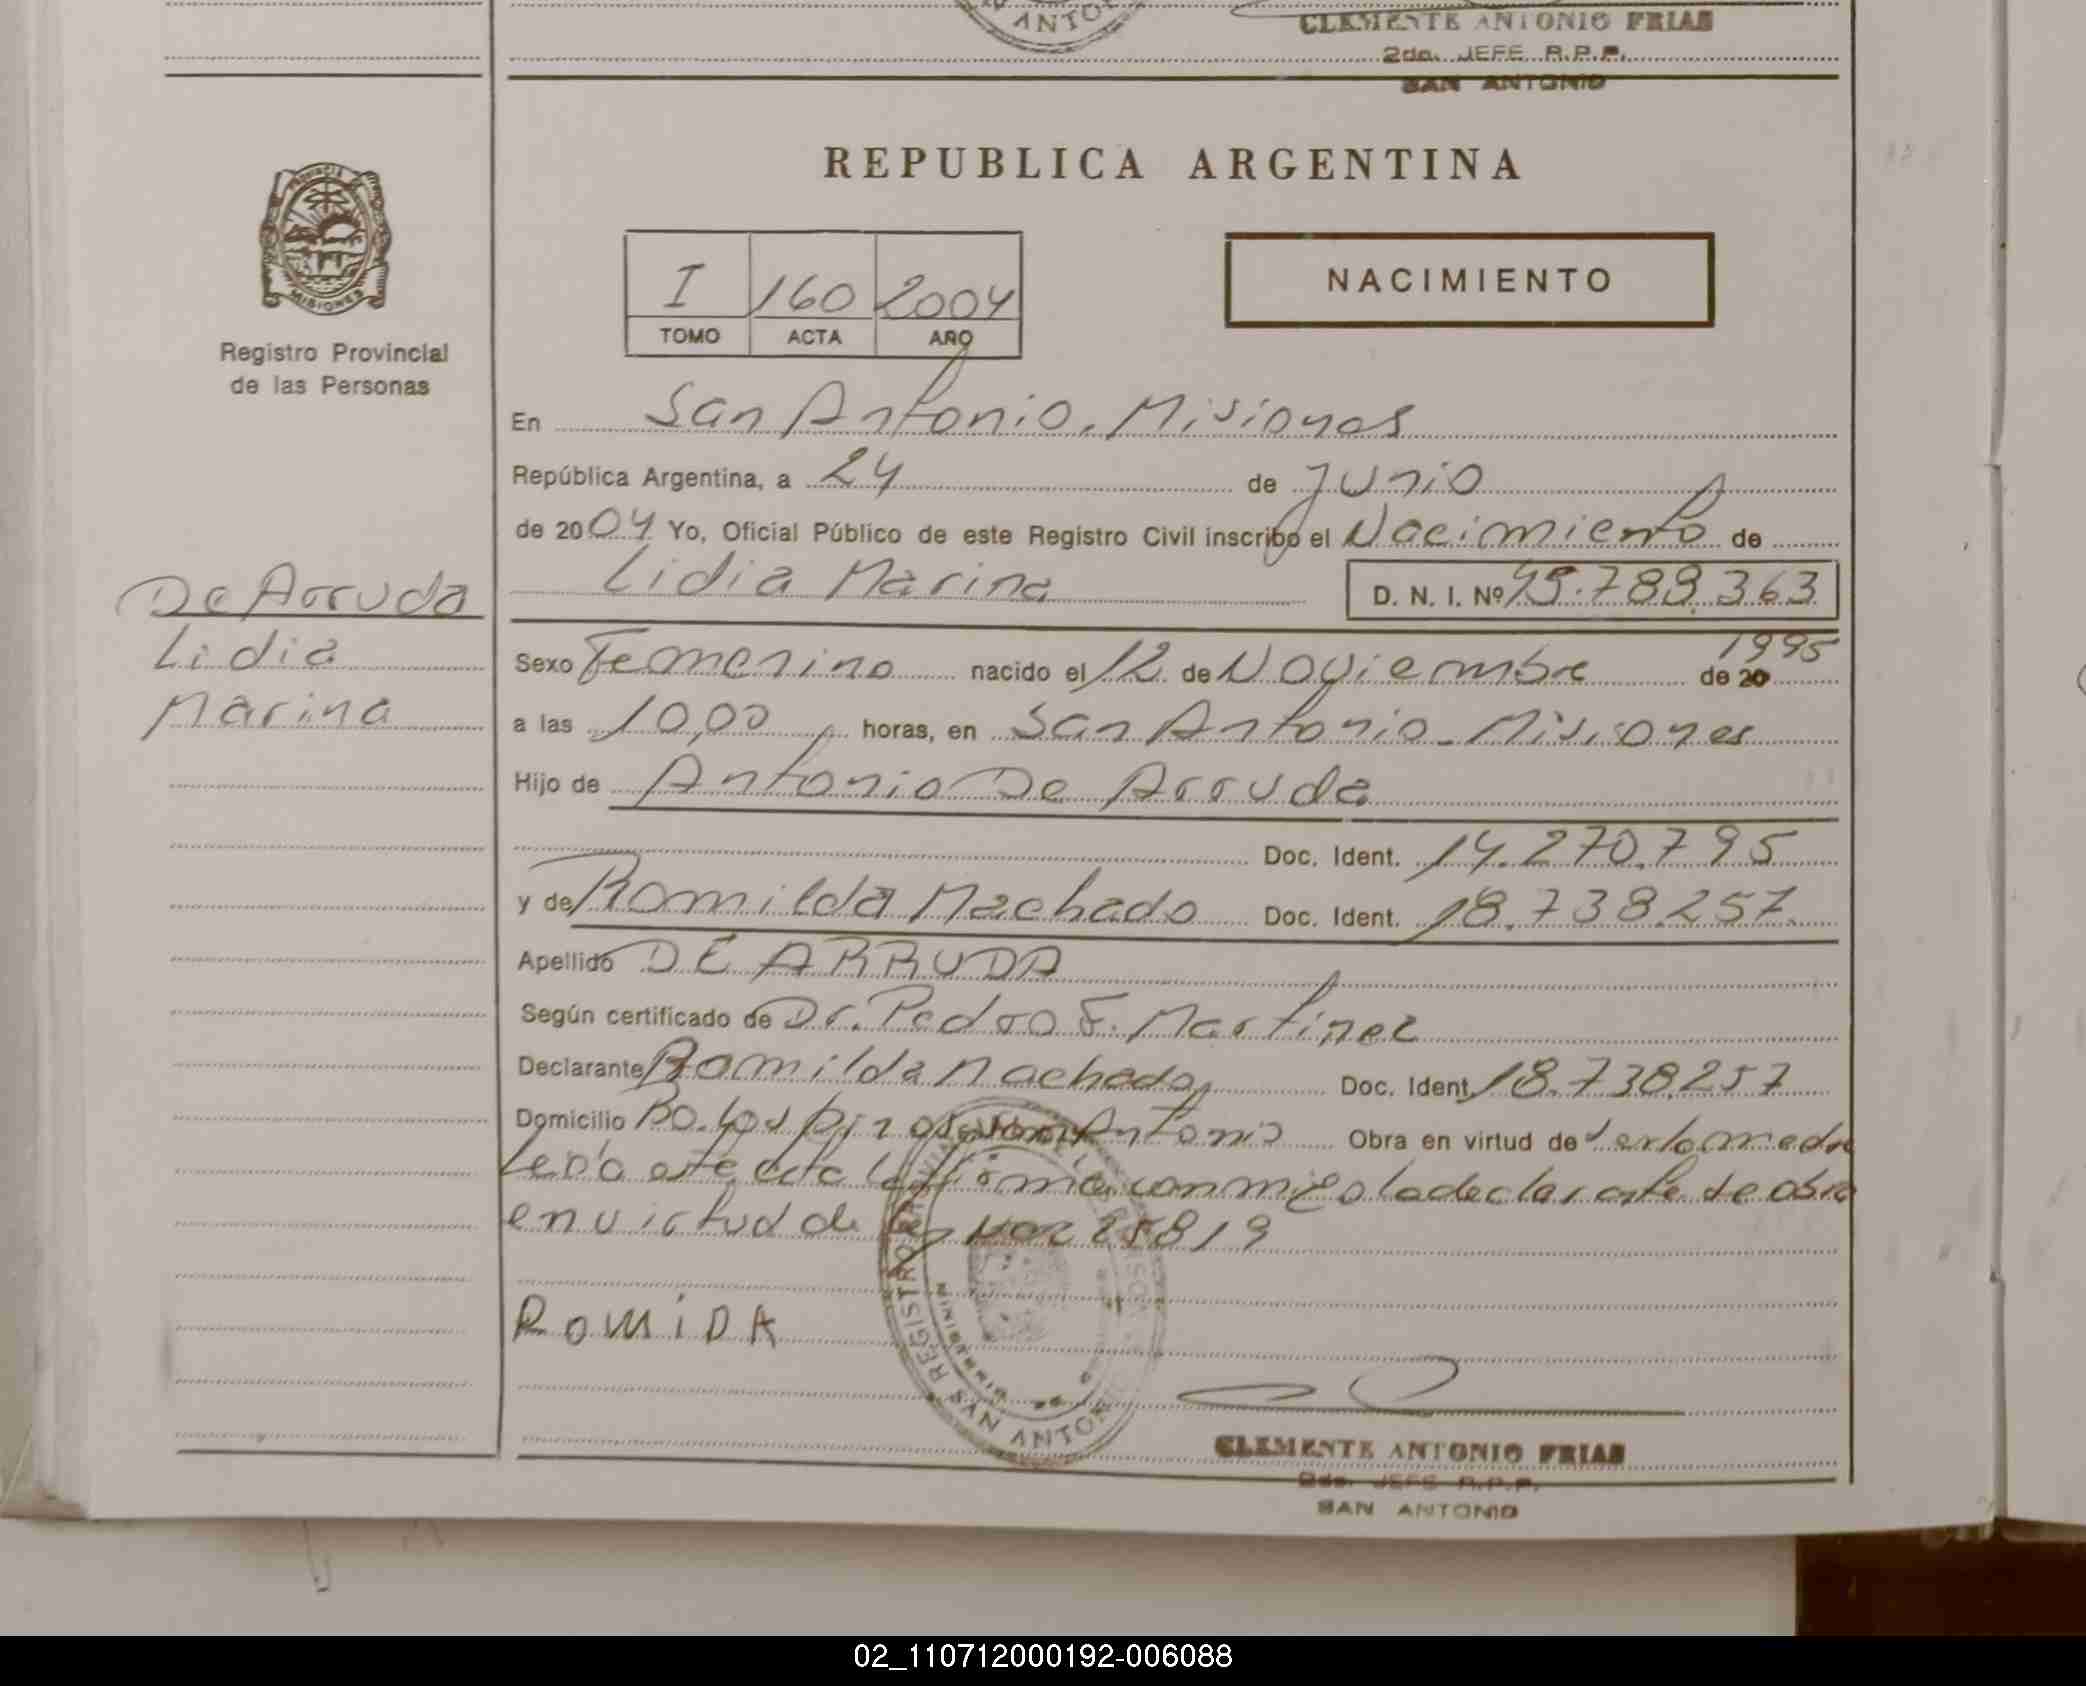 ANTO
CLEMENTE ANTONIO FRIAS
2do. JEFE R.P.P.
SAN ANTONIO
PROVINCIA DE
MISIONES
Registro Provincial
de las Personas
De Arruda
Lidia
Marina
REPUBLICA ARGENTINA
I 160 2004
TOMO ACTA AÑO
NACIMIENTO
En San Antonio. Misiones
República Argentina, a 24 de Junio
de 2004 Yo, Oficial Público de este Registro Civil inscribo el Nacimiento de
Lidia Marina D. N. I. Nº 45.789.363
Sexo Femenino nacido el 12 de Noviembre de 20 1995
a las 10,00 horas, en San Antonio - Misiones
Hijo de Antonio De Arruda
Doc. Ident. 14.270.795
y de Romilda Machado Doc. Ident. 18.738.257
Apellido DE ARRUDA
Según certificado de Dr. Pedro F. Martinez
Declarante Romilda Machado Doc. Ident. 18.738.257
Domicilio Bo. Los Pinos San Antonio Obra en virtud de
este acta la firma conmigo la declarante se obra
en virtud de Ley Nº 25819
ROMIDA
SAN ANTONIO
CLEMENTE ANTONIO FRIAS
2do. JEFE R.P.P.
SAN ANTONIO
02_110712000192-006088